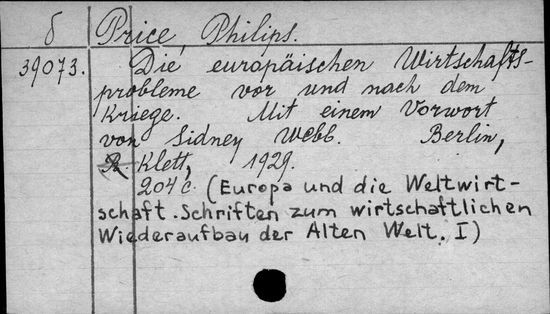 б Price, Philips.
39073. Die europäischen Wirtschafts-
probleme vor und nach dem
Kriege. Mit einem Vorwort
von Sidney Webb. Berlin,
R Klett, 1929.
204 с. (Europa und die Weltwirt-
schaft. Schriften zum wirtschaftlichen
Wiederaufbau der Alten Welt. I)